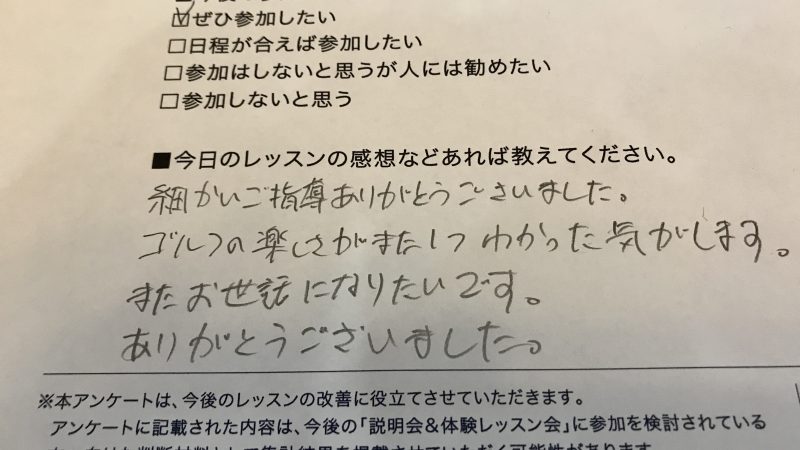 ☑ぜひ参加したい
□日程が合えば参加したい
□参加はしないと思うが人には勧めたい
□参加しないと思う
■今日のレッスンの感想などあれば教えてください。
細かいご指導ありがとうございました。
ゴルフの楽しさがまた1つわかった気がします。
またお世話になりたいです。
ありがとうございました。
※本アンケートは、今後のレッスンの改善に役立てさせていただきます。
アンケートに記載された内容は、今後の「説明会&体験レッスン会」に参加を検討されている